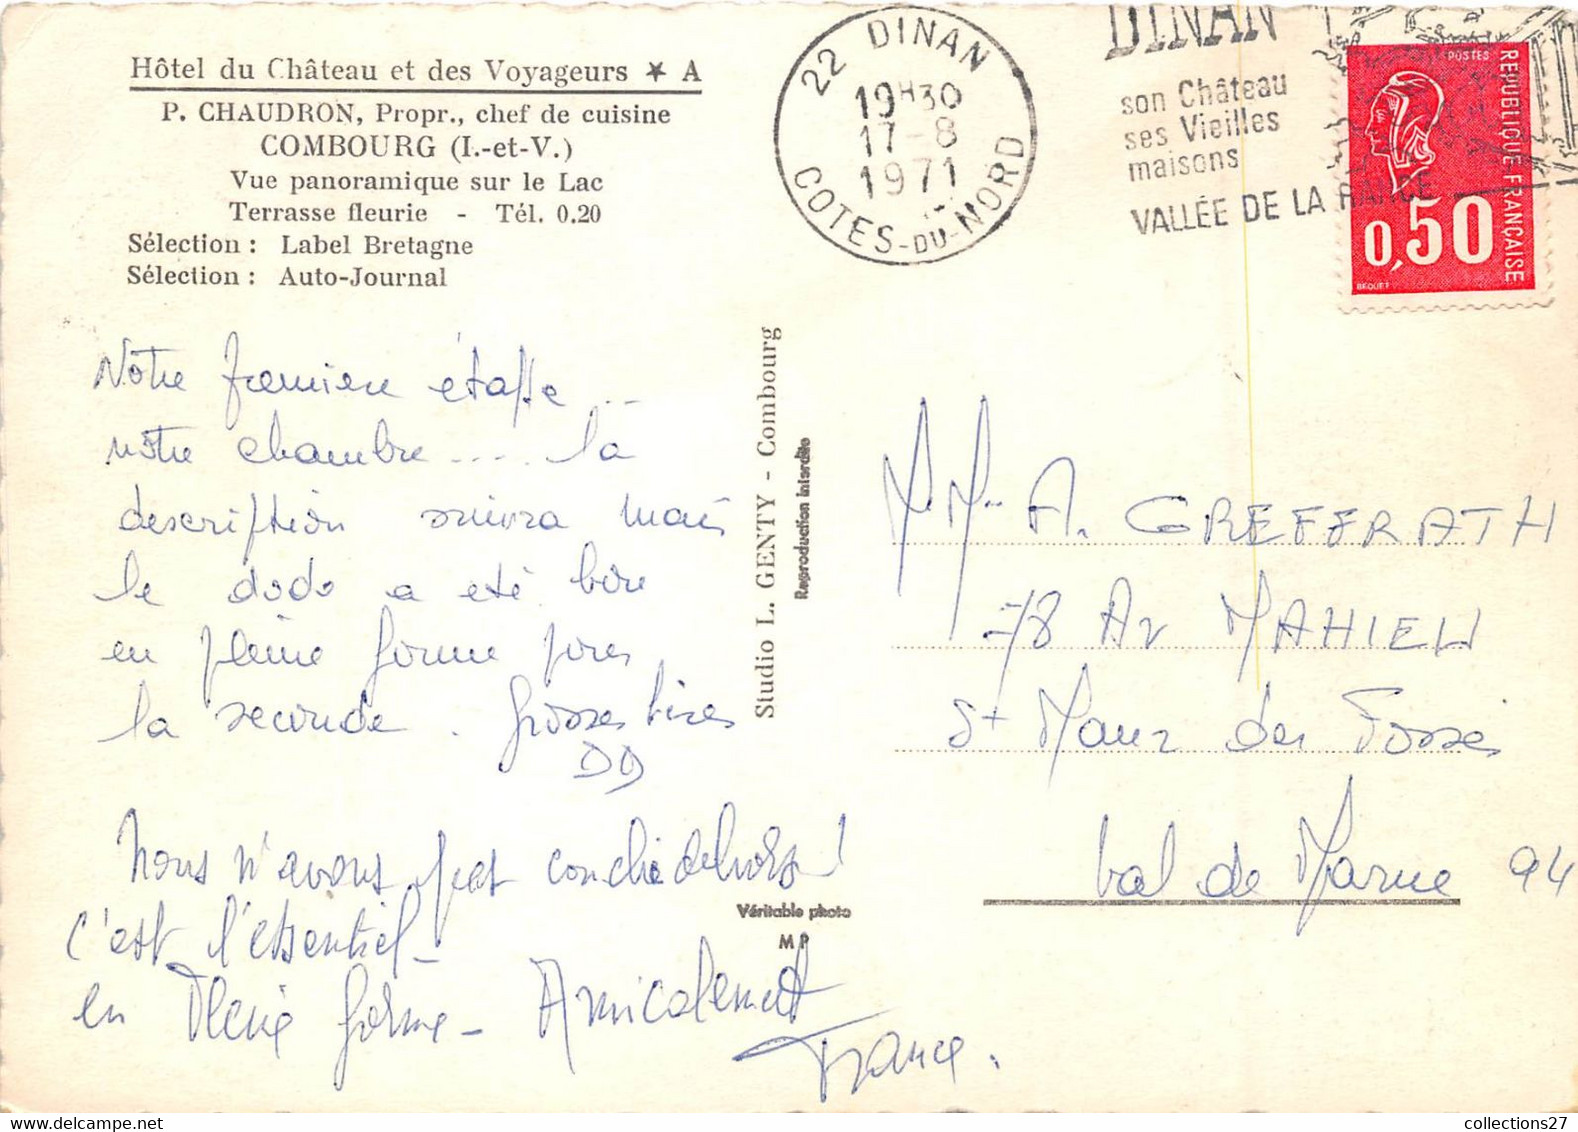 Hôtel du Château et des Voyageurs ★ A
P. CHAUDRON, Propr., chef de cuisine
COMBOURG (I.-et-V.)
Vue panoramique sur le Lac
Terrasse fleurie - Tél. 0.20
Sélection : Label Bretagne
Sélection : Auto-Journal
22 DINAN
19H30
17-8
1971
COTES-DU-NORD
DINAN
son Château
ses Vieilles
maisons
VALLÉE DE LA RANCE
POSTES
REPUBLIQUE FRANÇAISE
0,50
BEQUET
Notre première étape ...
notre chambre .... la
description suivra mais
le dodo a été bon
en pleine forme pour
la seconde. Grosses bises
DD
Nous n'avons pas couché dehors !
c'est l'essentiel -
en pleine forme - Amicalement
France.
Studio L. GENTY - Combourg
Reproduction interdite
Véritable photo
M P
M. Me A. GREFFRATH
78 Av MAHIEU
St Maur des Fossés
Val de Marne 94
collections27